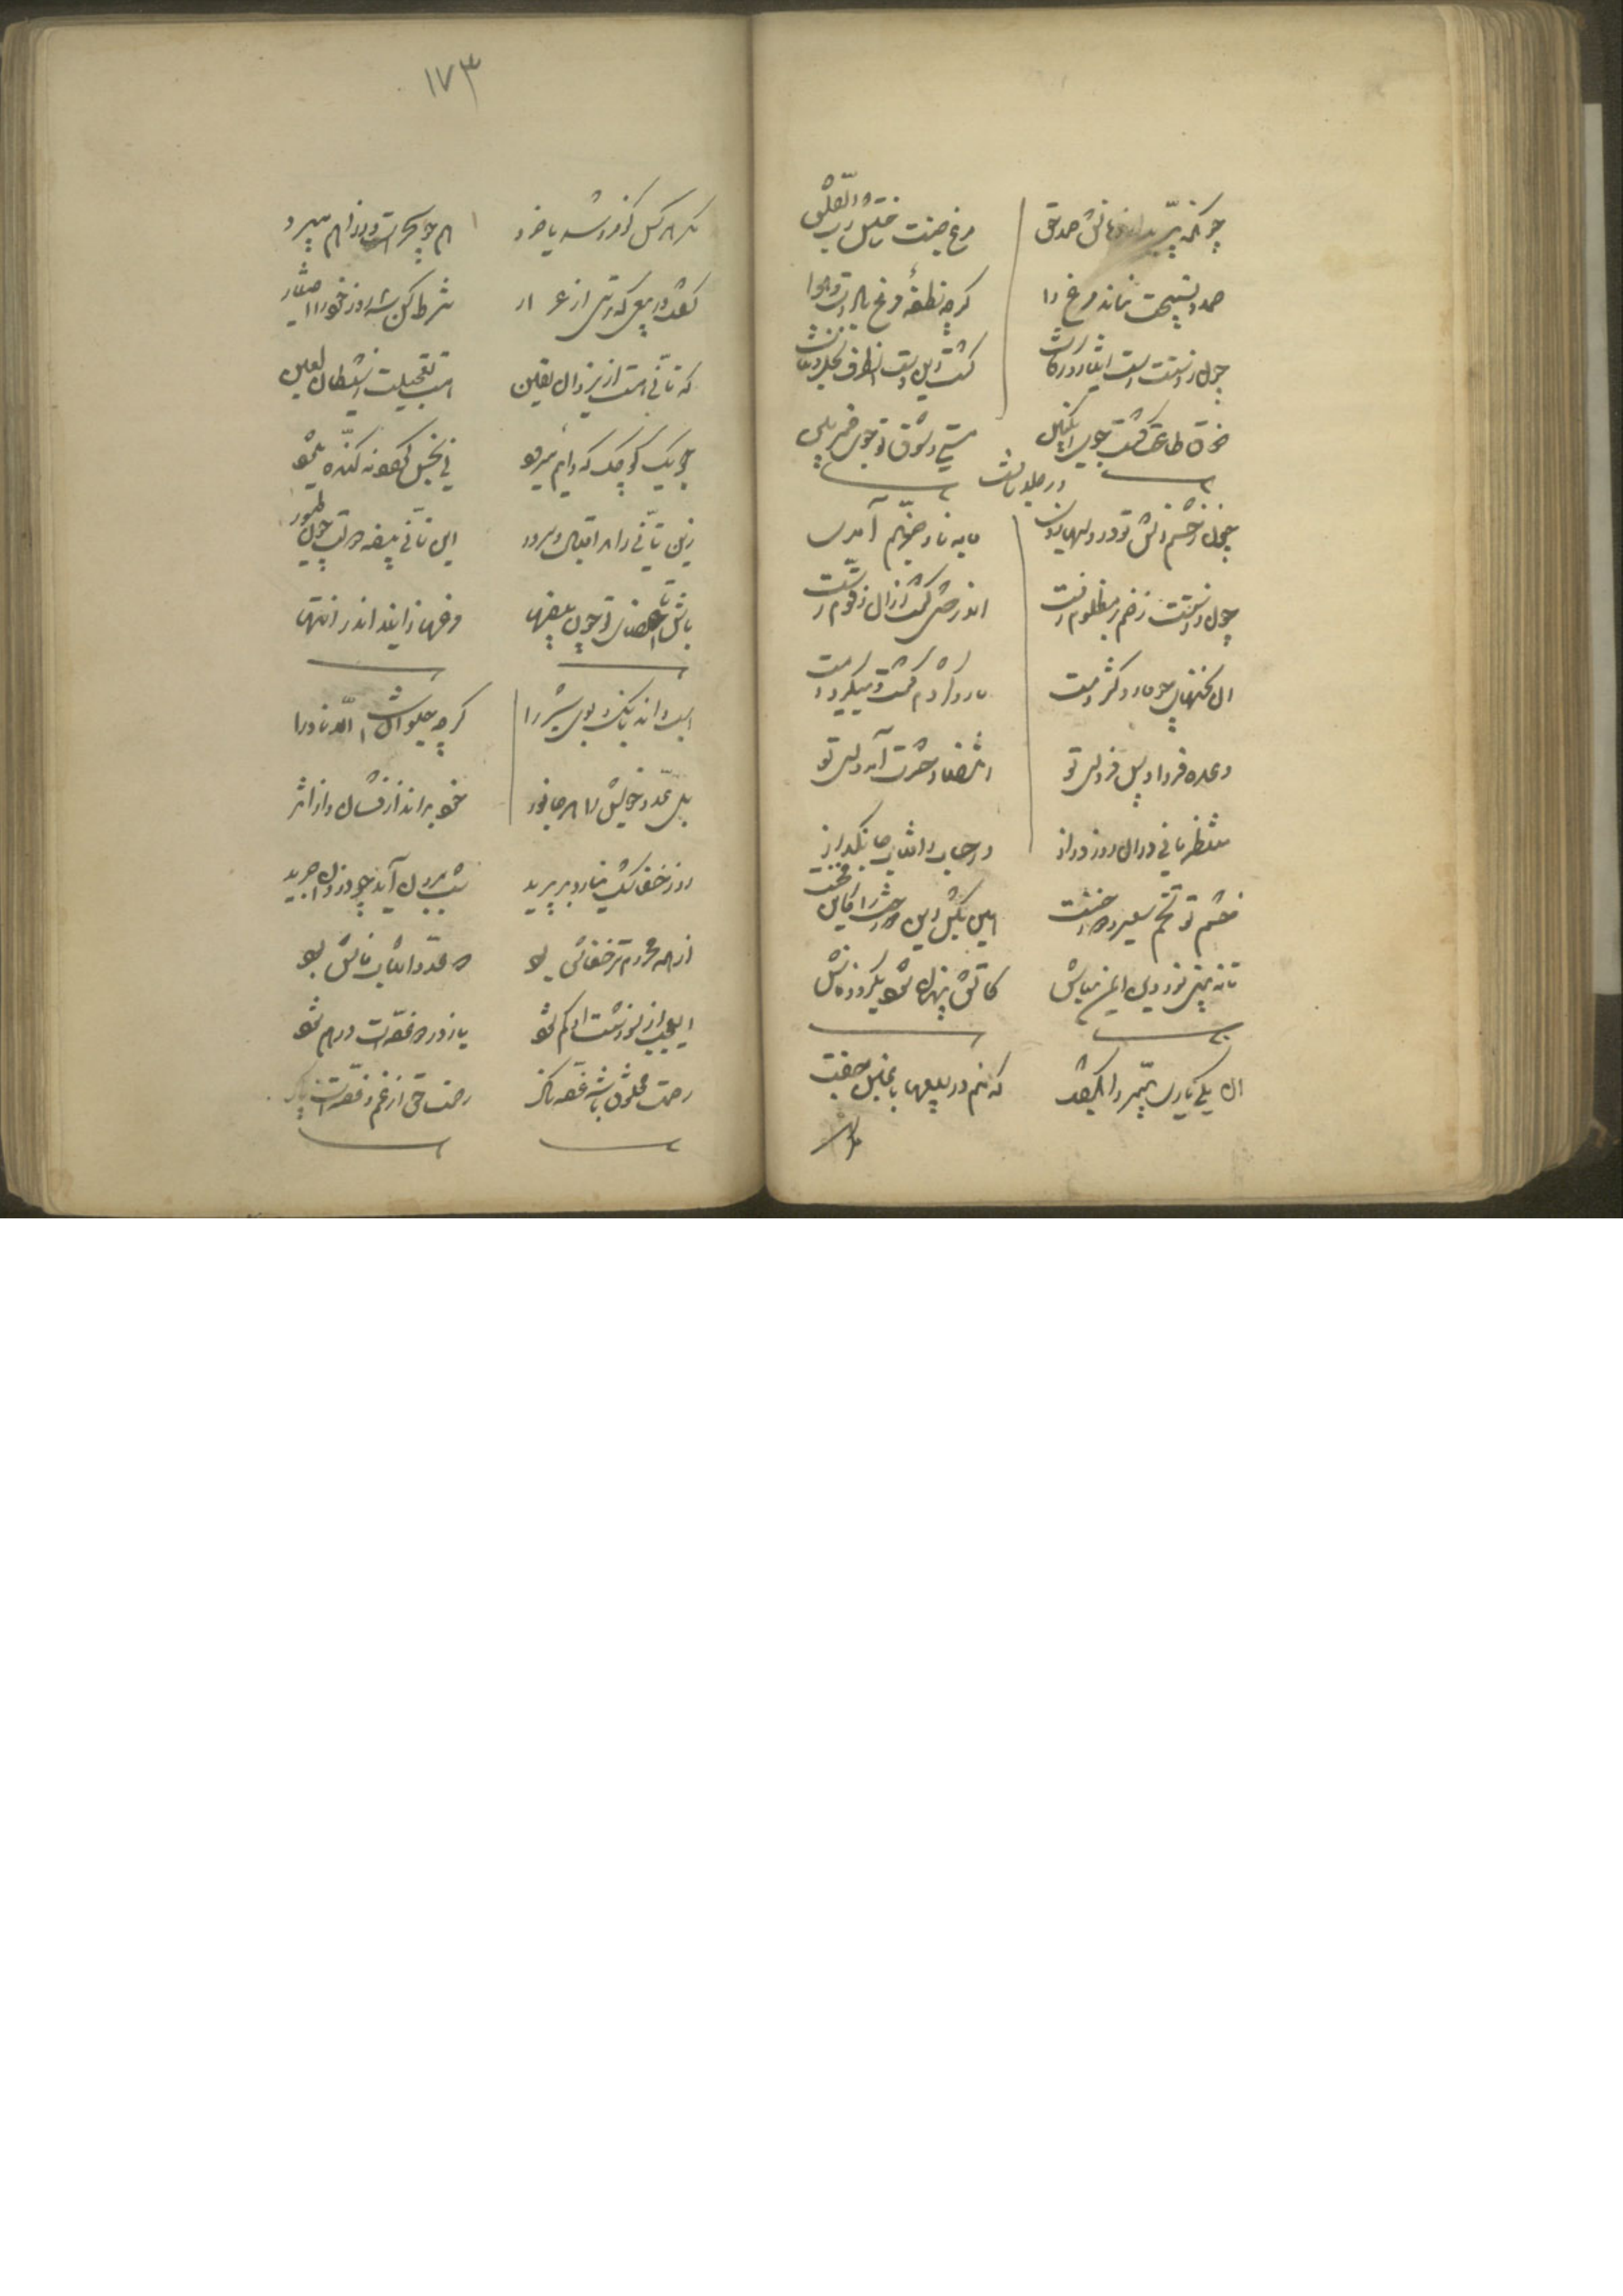 چونکه پرید از دهانش حمد حق
مرغ جنت ساختش رب الفلق
حمد و تسبیحت نماند مرغ را
گرچه نطفه مرغ بادست و هوا
چون ز دستت رست ایثار و زکات
گشت این دست آن طرف نخل و نبات
ذوق طاعت گشت جوی انگبین
مستی و شوق تو جوی خمر بین
در جلد ثالث
چون ز خشم آتش تو در دلها زدی
مایه نار جهنم آمدی
چون ز دستت زخم بر مظلوم رست
آن درختی گشت ازان زقوم رست
آن سخنهای چو مار و کژدمت
مار و کژدم گشت و میگیرد دمت
وعده فردا و پس فردای تو
انتظار حشرت آمد وای تو
منتظر مانی در آن روز دراز
در حساب و آفتاب جانگداز
خشم تو تخم سعیر دوزخست
هین بکش این دوزخت را کاین فخست
تا نه بینی نور دین ایمن مباش
کآتش پنهان شود یکروز فاش
آن یکی یاری پیمبر را بگفت
که منم در بیعها با غبن جفت
۱۷۳
مکر هر کس کو فروشد یا خرد
هم چو سحرست و ز راهم میبرد
گفت در بیعی که ترسی از غرار
شرط کن سه روز خود را اختیار
که تأنی هست از یزدان یقین
هست تعجیلت ز شیطان لعین
جویک کوچک که دایم میرود
نی نجس گردد نه گنده میشود
زین تأنی زاید اقبال و سرور
این تأنی بیضه دولت چون طیور
باش تا اعضای تو چون بیضها
مرغها زاید اندر انتها
اسب داند بانگ و بوی شیر را
گرچه حیوانست الا نادرا
بل عدو خویش را هر جانور
خود بداند از نشان و از اثر
روز خفاشک نیارد بر پرید
شب برون آید چو دزدان چرید
از همه محروم تر خفاش بود
که عدو آفتاب فاش بود
ای عجب از سوزشت او کم شود
یا ز درد غصه‌ات درهم شود
رحمت مخلوق باشد غصه ناک
رحمت حق از غم و غصه‌ست پاک